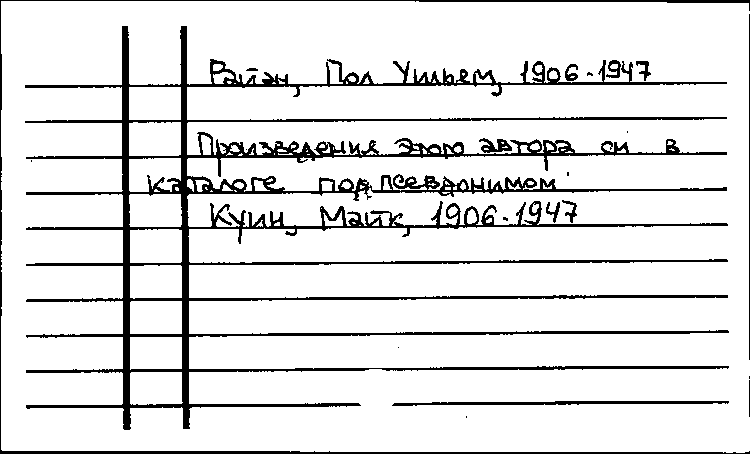 Райан, Пол Уильем, 1906-1947
Произведения этого автора см в
каталоге под псевдонимом:
Куин, Майк, 1906-1947